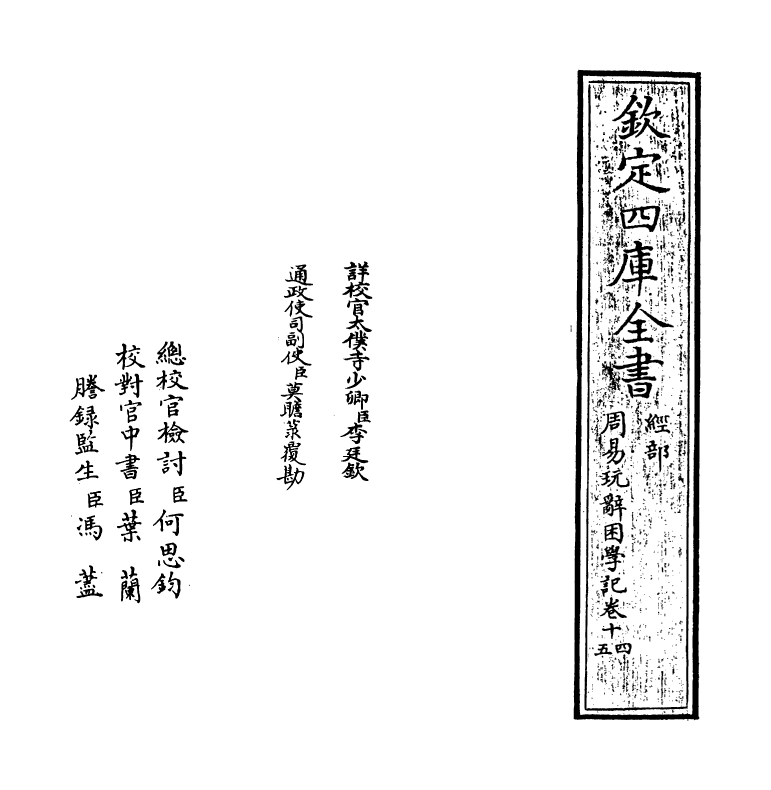 欽定四庫全書
經部
周易玩辭困學記卷十四五
詳校官太僕寺少卿臣李廷欽
通政使司副使臣莫瞻菉覆勘
總校官檢討臣何思鈞
校對官中書臣葉蘭
謄録監生臣馮藎